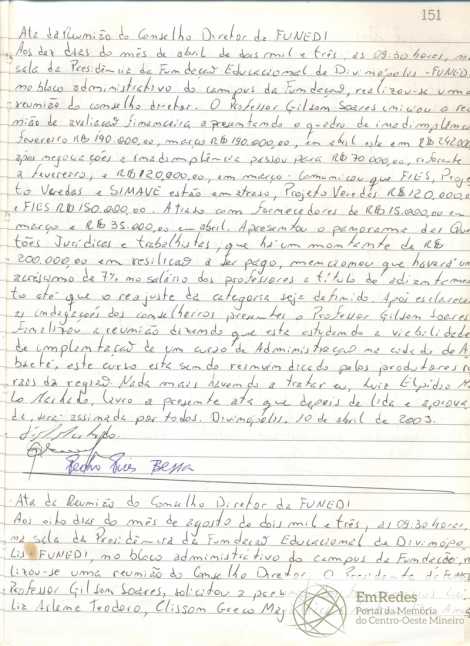 151
Ata da Reunião do Conselho Diretor da FUNEDI
Aos dez dias do mês de abril de dois mil e três, as 09:30 horas, na
sala da Presidência da Fundação Educacional de Divinópolis - FUNEDI
no bloco administrativo do campus da Fundação, realizou-se uma
reunião do conselho diretor. O Professor Gilson Soares iniciou o reu
nião de avaliação financeira apresentando o quadro de inadimplência
fevereiro R$ 190.000,00, março R$ 190.000,00, em abril este em R$
após negociações a inadimplência passou para R$ 70.000,00, referente
a fevereiro, e R$ 120.000,00, em março. Comunicou que FIES, Proje
to Veredas e SIMAVE estão em atraso, Projeto Veredas R$ 120.000,0
e FIES R$ 150.000,00. Atraso com fornecedores de R$ 15.000,00 em
março e R$ 35.000,00 em abril. Apresentou o panorama das Ques
tões Jurídicas e trabalhistas, que há um montante de R$
200.000,00 em resilição a ser pago, mencionou que haverá um
acréscimo de 7% no salário dos professores a título de adiantamen
to até que o reajuste da categoria seja definido. Após esclarecer
as indagações dos conselheiros presentes o Professor Gilson Soares
finalizou a reunião dizendo que esta estudando a viabilidade
de implantação de um curso de Administração na cidade de A
baeté, este curso esta sendo reinvindicado pelos produtores ru
rais da região. Nada mais havendo a tratar eu, Luiz Elpídio M
lo Machado, lavro a presente ata que depois de lida e aprova
da, será assinada por todos. Divinópolis, 10 de abril de 2003.
Pedro Pires Bessa
Ata da Reunião do Conselho Diretor da FUNEDI
Aos oito dias do mês de agosto de dois mil e três, as 09:30 horas,
na sala da Presidência da Fundação Educacional de Divinópo
lis - FUNEDI, no bloco administrativo do campus da Fundação, rea
lizou-se uma reunião do Conselho Diretor. O Presidente da FUNEDI
Professor Gilson Soares, solicitou a
liz Arlene Teodoro, Clisson Greco
EmRedes
Portal da Memória
do Centro-Oeste Mineiro